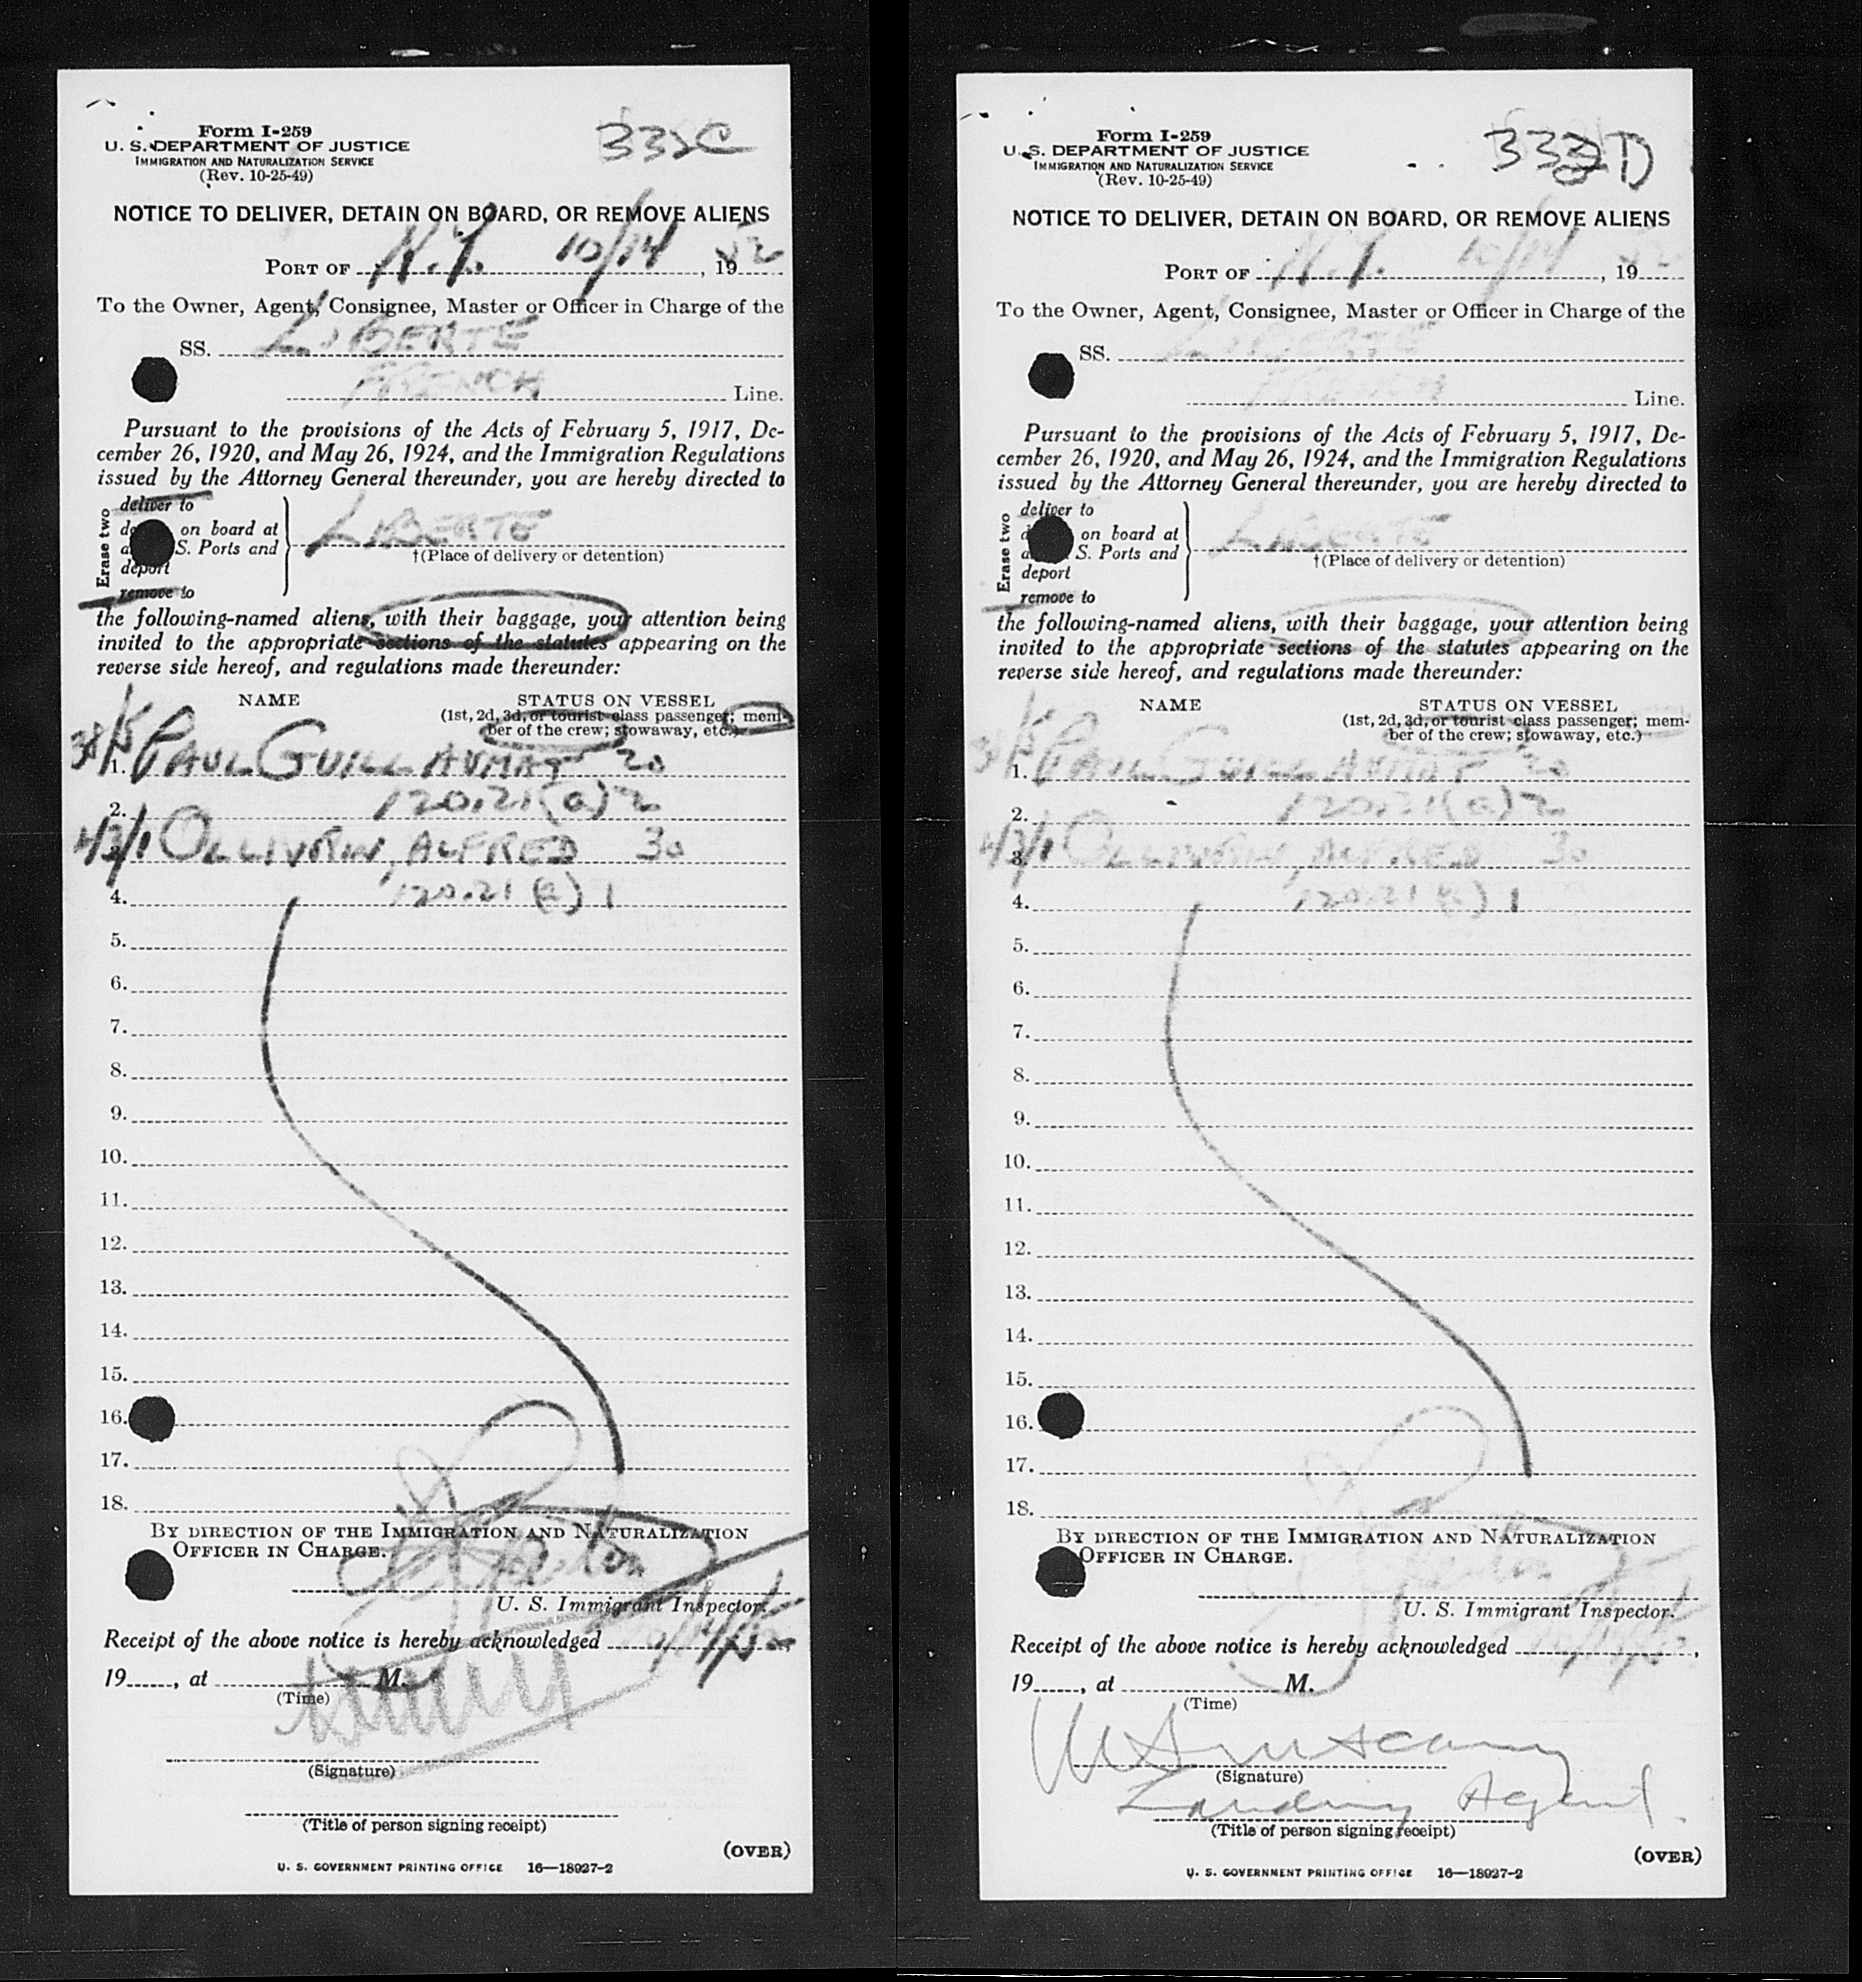 Form I-259
U. S. DEPARTMENT OF JUSTICE
IMMIGRATION AND NATURALIZATION SERVICE
(Rev. 10-25-49)
NOTICE TO DELIVER, DETAIN ON BOARD, OR REMOVE ALIENS
PORT OF N.Y. 10/14, 1952
To the Owner, Agent, Consignee, Master or Officer in Charge of the
SS. LIBERTE
FRENCH Line.
Pursuant to the provisions of the Acts of February 5, 1917, De-
cember 26, 1920, and May 26, 1924, and the Immigration Regulations
issued by the Attorney General thereunder, you are hereby directed to
Erase two
deliver to
on board at
S. Ports and
deport
remove to
LIBERTE
†(Place of delivery or detention)
the following-named aliens, with their baggage, your attention being
invited to the appropriate sections of the statutes appearing on the
reverse side hereof, and regulations made thereunder:
NAME STATUS ON VESSEL
(1st, 2d, 3d, or tourist class passenger; mem-
ber of the crew; stowaway, etc.)
38/15 1. PAUL GUILLAUMAT 20
2. 120.21(a)2
4/3/1 3. ALFRED 30
4. 120.21(a)1
5.
6.
7.
8.
9.
10.
11.
12.
13.
14.
15.
16.
17.
18.
BY DIRECTION OF THE IMMIGRATION AND NATURALIZATION
OFFICER IN CHARGE.
U. S. Immigrant Inspector.
Receipt of the above notice is hereby acknowledged 10/14/52,
19, at M.
(Time)
(Signature)
(Title of person signing receipt)
(OVER)
U. S. GOVERNMENT PRINTING OFFICE 16—18927-2
Form I-259
U. S. DEPARTMENT OF JUSTICE
IMMIGRATION AND NATURALIZATION SERVICE
(Rev. 10-25-49)
NOTICE TO DELIVER, DETAIN ON BOARD, OR REMOVE ALIENS
PORT OF N.Y. 10/14, 1952
To the Owner, Agent, Consignee, Master or Officer in Charge of the
SS. LIBERTE
FRENCH Line.
Pursuant to the provisions of the Acts of February 5, 1917, De-
cember 26, 1920, and May 26, 1924, and the Immigration Regulations
issued by the Attorney General thereunder, you are hereby directed to
Erase two
deliver to
on board at
S. Ports and
deport
remove to
LIBERTE
†(Place of delivery or detention)
the following-named aliens, with their baggage, your attention being
invited to the appropriate sections of the statutes appearing on the
reverse side hereof, and regulations made thereunder:
NAME STATUS ON VESSEL
(1st, 2d, 3d, or tourist class passenger; mem-
ber of the crew; stowaway, etc.)
38/15 1. PAUL GUILLAUMAT 20
2. 120.21(a)2
4/3/1 3. ALFRED 30
4. 120.21(a)1
5.
6.
7.
8.
9.
10.
11.
12.
13.
14.
15.
16.
17.
18.
BY DIRECTION OF THE IMMIGRATION AND NATURALIZATION
OFFICER IN CHARGE.
U. S. Immigrant Inspector.
Receipt of the above notice is hereby acknowledged 10/14/52,
19, at M.
(Time)
(Signature)
Landing Agent.
(Title of person signing receipt)
(OVER)
U. S. GOVERNMENT PRINTING OFFICE 16—18927-2